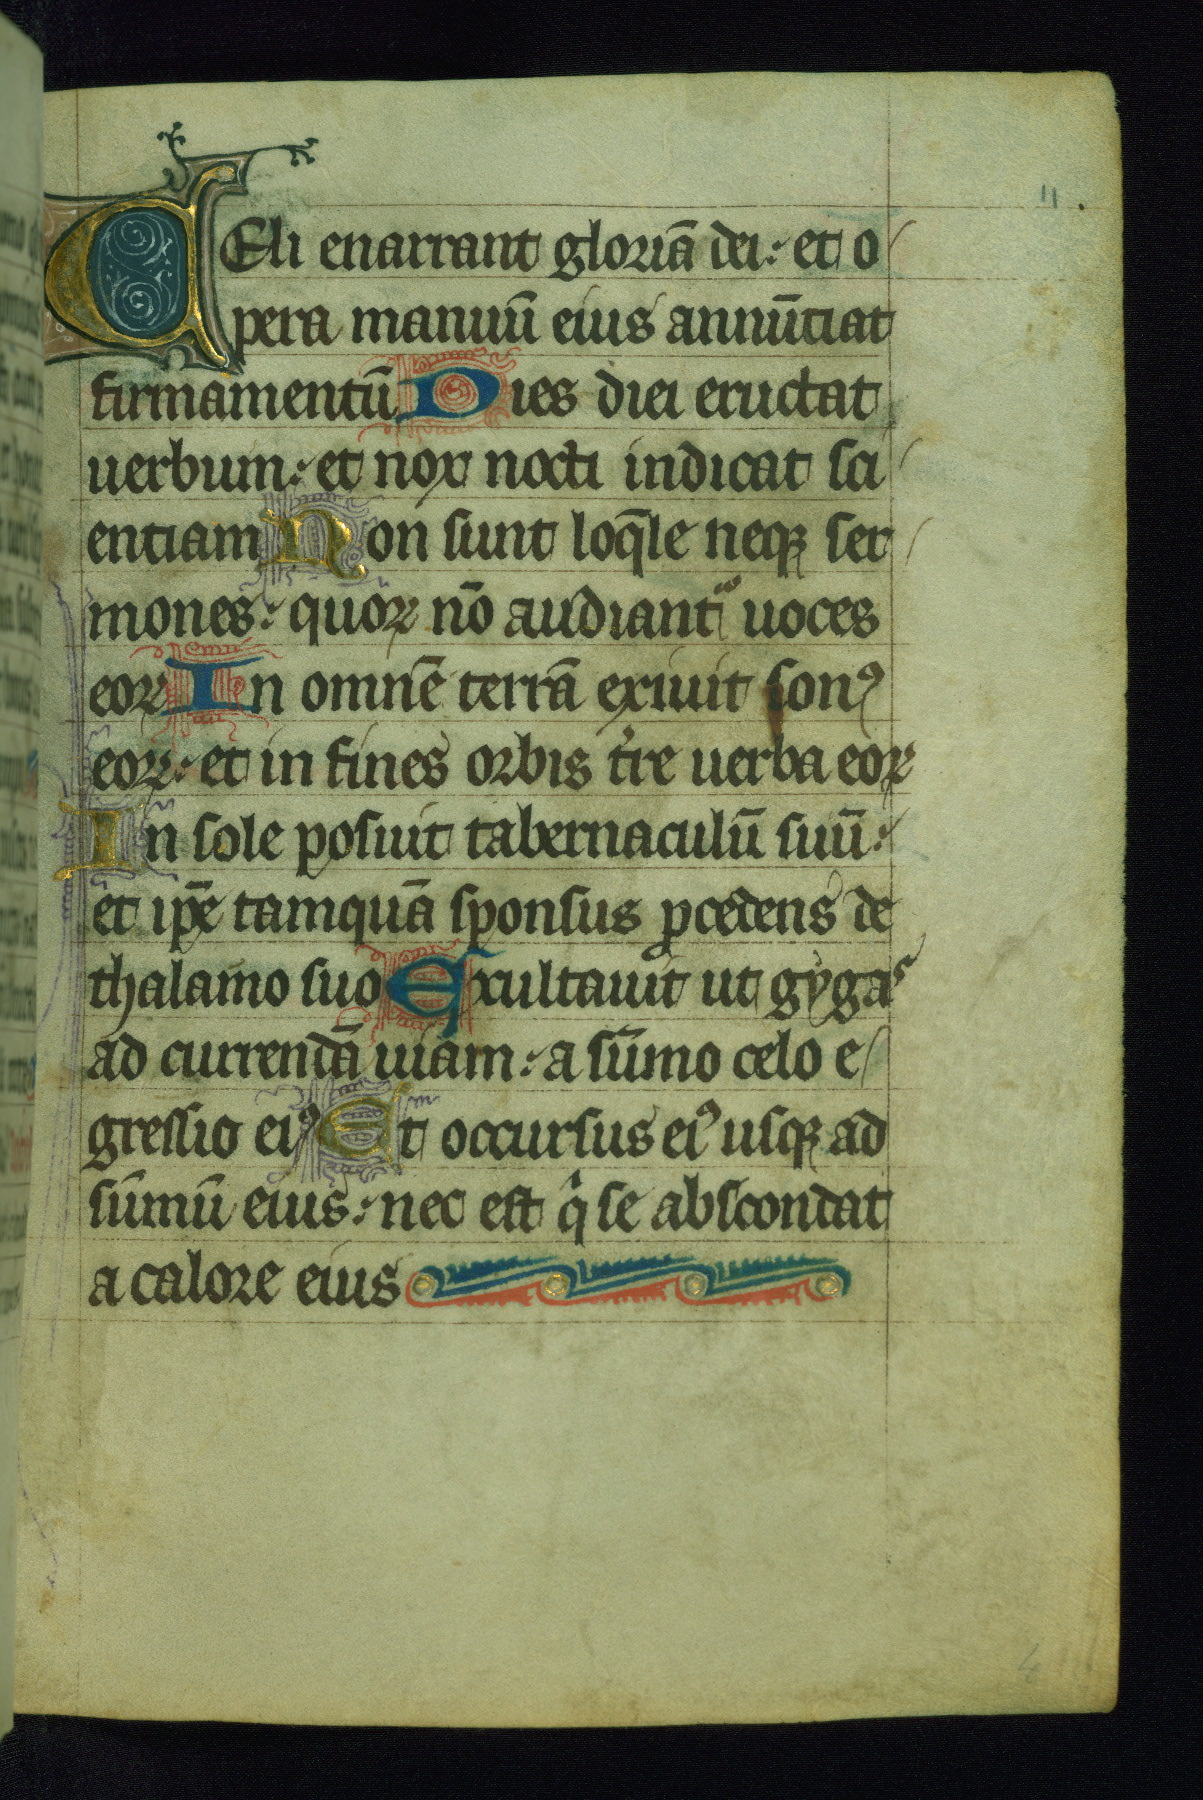 11
CEli enarrant gloriā dei: et o
pera manuū eius annūtiat
firmamentū Dies diei eructat
uerbum: et nox nocti indicat sci
entiam Non sunt loq̄le neqꝫ ser
mones: quoꝝ nō audiantᷣ uoces
eoꝝ In omnē terrā exiuit sonꝰ
eoꝝ: et in fines orbis t̄re uerba eoꝝ
In sole posuit tabernaculū suū:
et ip̄e tamquā sponsus ꝓcedens de
thalamo suo Exultauit ut gygas
ad currendā uiam: a sūmo celo e
gressio eiꝰ Et occursus eiꝰ usqꝫ ad
sūmū eius: nec est qͥ se abscondat
a calore eius
4